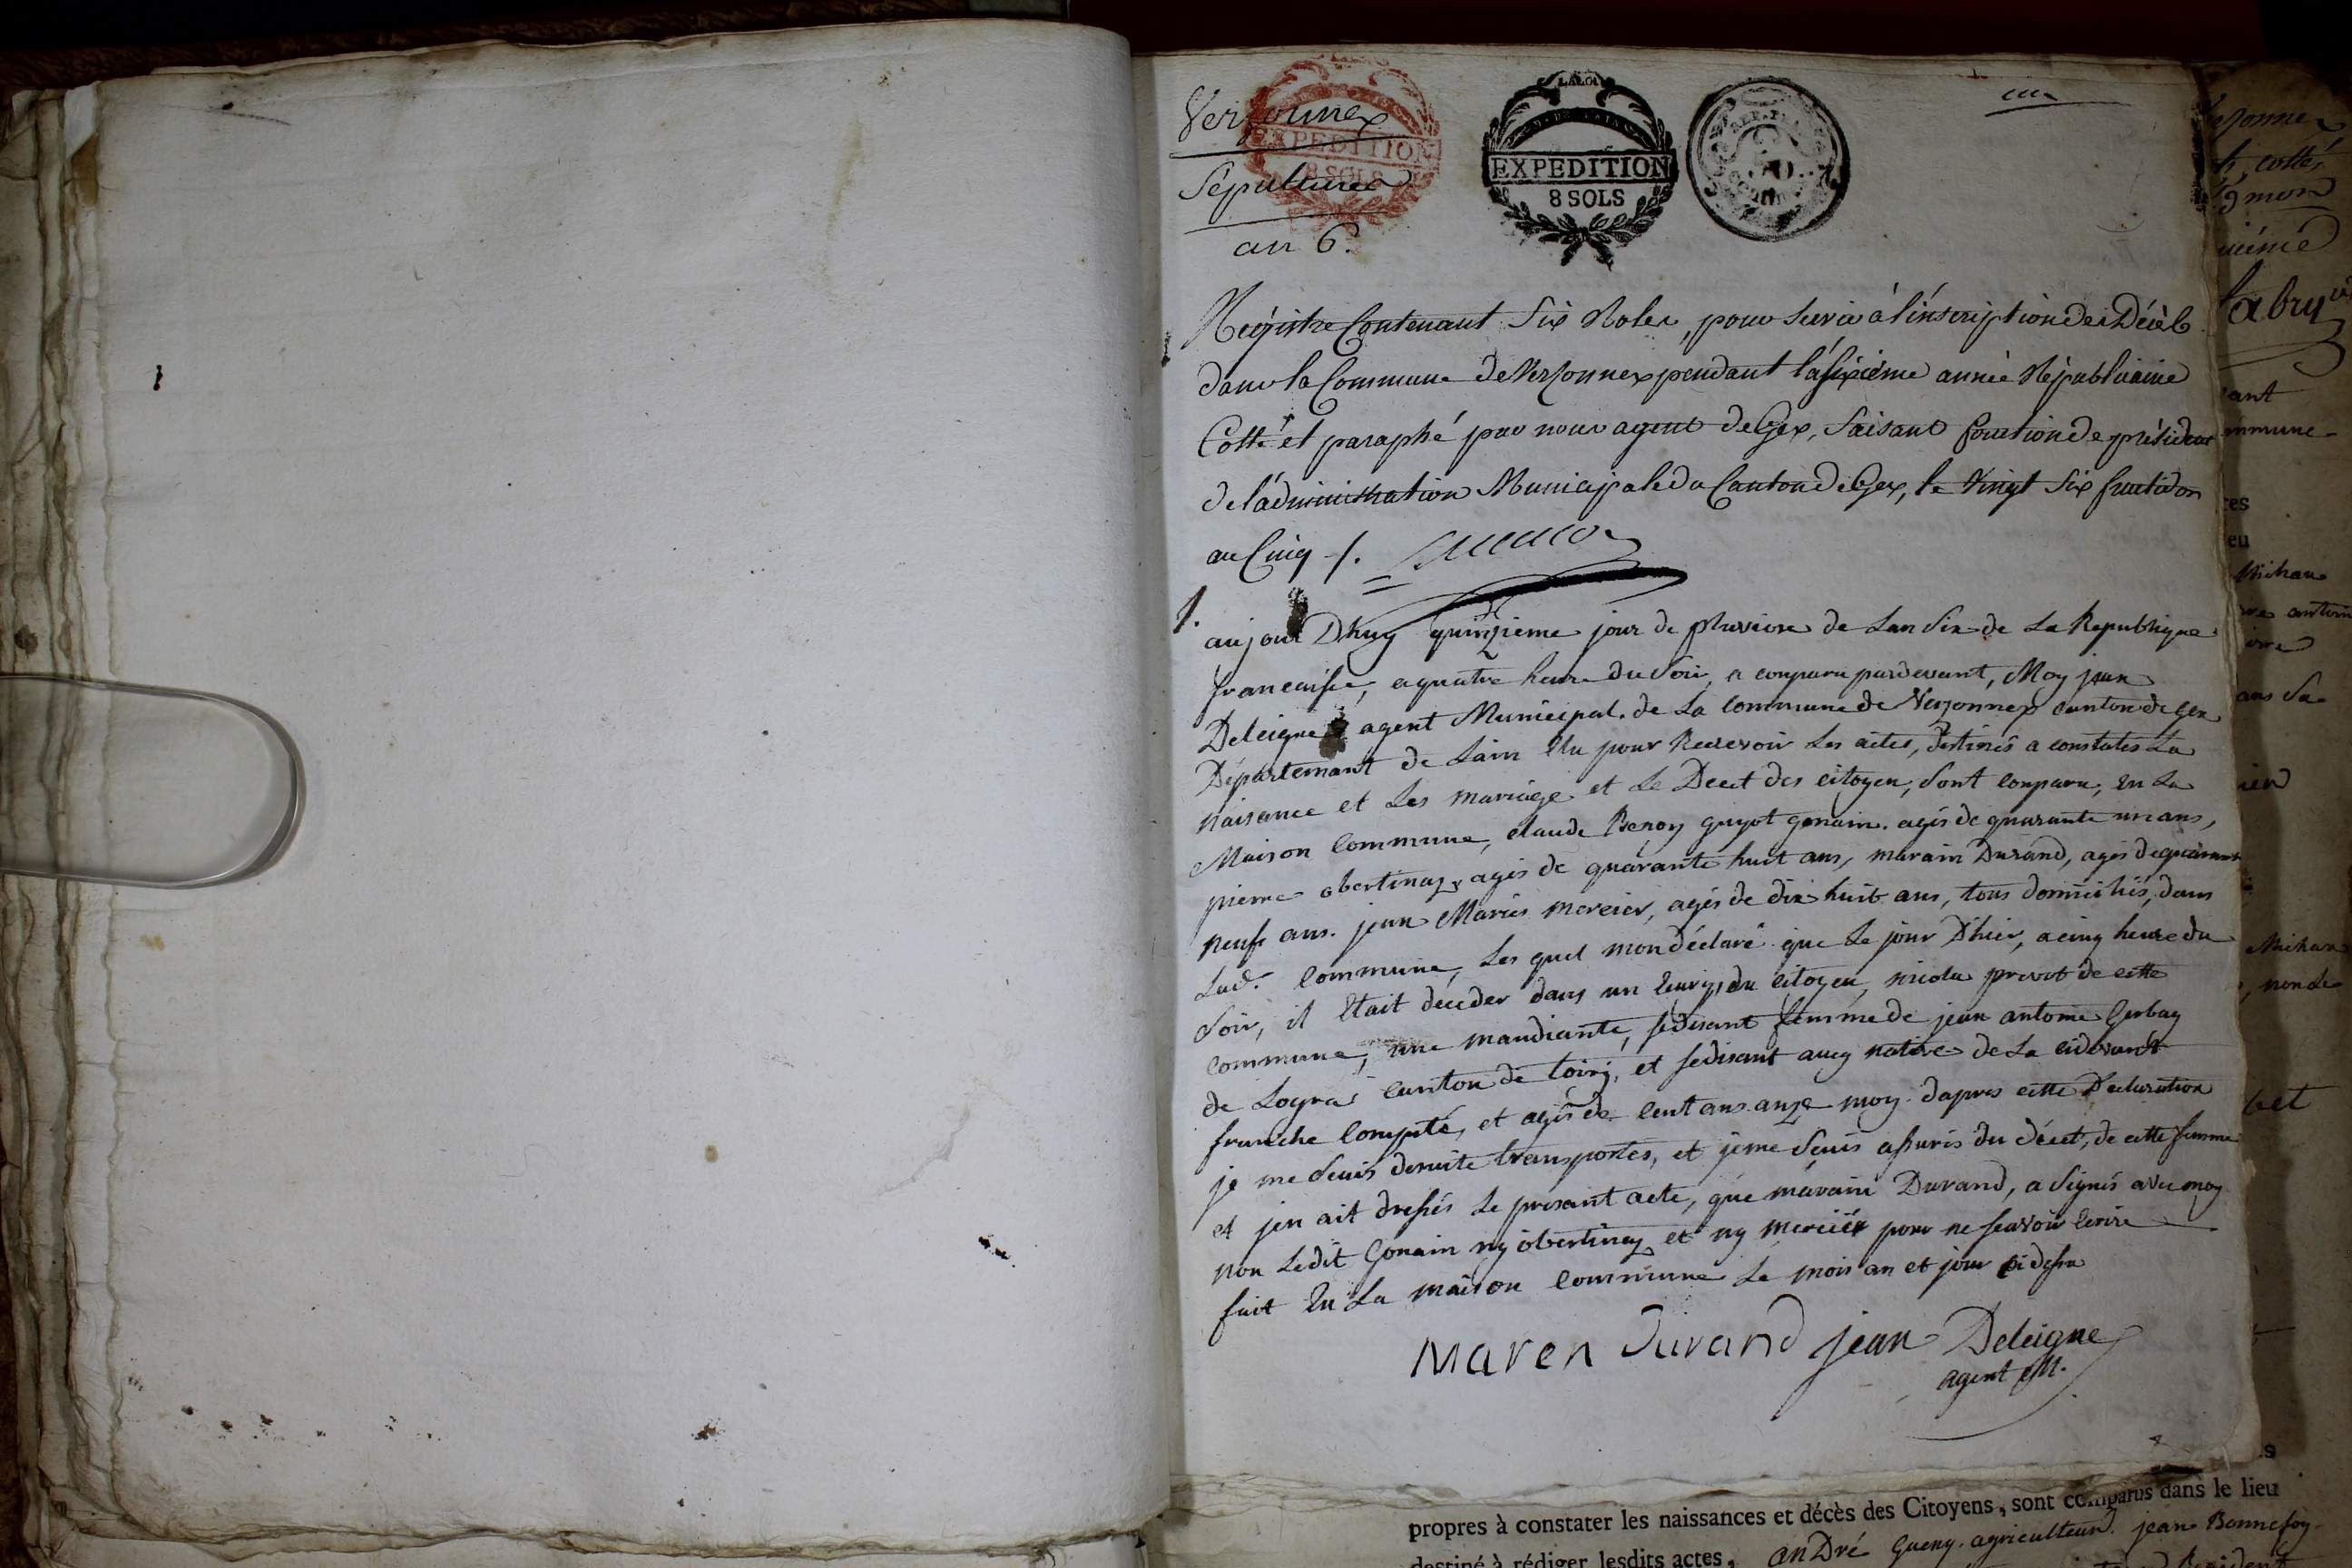 Versonnex
Sépultures
an 6.
LA LOI
EXPEDITION
8 SOLS
EXPEDITION
8 SOLS
Regístre Contenant Six Roles, pour Servir à l'inscription des Décèb
dans la Commune de Versonnex pendant la sixième année Républicaine
Cotté et paraphé par nous agent de Gex, faisant fonction de président
de l'administration Municipale du Canton de Gex, le Vingt Six fructidor
an Cinq ./.
1.
aujour Dhuy quinzieme jour de pluviose de Lan Six de La Republique
francaisse, a quatre heure du Soir, a conparu pardevant, Moy jean
Deleigne agent Municipal. de La commune de Versonnex canton de Gex
Départemant de Lain Elu pour Recevoir Les actes, destinés a constates La
naisance et Les mariage et Le Decet des citoyen, sont conparu, En La
Maison Commune, claude guyot gonain. agés de quarante un ans,
pierre obertinaz, agés de quarante huit ans, marain Durand, agés de quarante
neuf ans. jean Maries mercier, agés de dix huit ans, tous domicihés, dans
Lad. Commune, Les quel mon déclaré que Le jour Dhier, a cinq heure du
Soir, il Etait décéder dans un Ecurÿ, du citoyen, nicola prevot de cette
Commune, une mandiante, sedisant femme de jean antoine Gerbay
de Logra canton de Toirÿ, et sedisant aucy native de La cidevant
franche Compté, et agés de Cent ans anze moy. dapres cette Declaration
je me Seuis densuite transportes, et jeme Seuis assurés du décet, de cette femme
et jen ait dressés Le présant acte, que marain Durand, a Signés avec moy
non Ledit Gonain ny obertinaz et ny merciér pour ne scavoir Ecrire
fait En La maison Commune Le mois an et jour ci dessu
Maren Durand jean Deleigne
agent M.
propres à constater les naissances et décès des Citoyens, sont comparus dans le lieu
destiné à rédiger lesdits actes, anDré Gueny. agriculteur. jean Bonnefoy